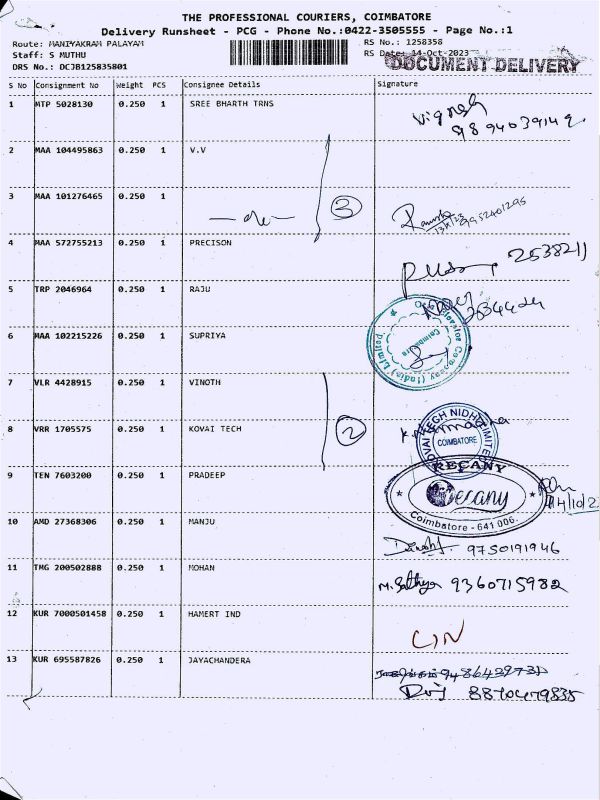 THE PROFESSIONAL COURIERS, COIMBATORE
Delivery Runsheet - PCG - Phone No.:0422-3505555 - Page No.:1
Route: MANIYAKRAM PALAYAM
RS No.: 1258358
Staff: S MUTHU
RS Date: 14-Oct-2023
DRS No.: DCJB125835801
DOCUMENT DELIVERY
S No Consignment No Weight PCS Consignee Details Signature
1 MTP 5028130 0.250 1 SREE BHARTH TRNS
Vignesh
9894039149
2 MAA 104495863 0.250 1 V.V
3 MAA 101276465 0.250 1
3
9952401295
4 MAA 572755213 0.250 1 PRECISON
2538211
5 TRP 2046964 0.250 1 RAJU
6 MAA 102215226 0.250 1 SUPRIYA
Company (India) Limited
Coimbatore
7 VLR 4428915 0.250 1 VINOTH
8 VRR 1705575 0.250 1 KOVAI TECH
2
NIDHI LIMITED
COIMBATORE
9 TEN 7603200 0.250 1 PRADEEP
RECANY
Recany
Coimbatore - 641 006.
14/10/2
10 AMD 27368306 0.250 1 MANJU
9750191946
11 TMG 200502888 0.250 1 MOHAN
M. Sathya 9360715982
12 KUR 7000501458 0.250 1 HAMERT IND
13 KUR 695587826 0.250 1 JAYACHANDERA
8870479835